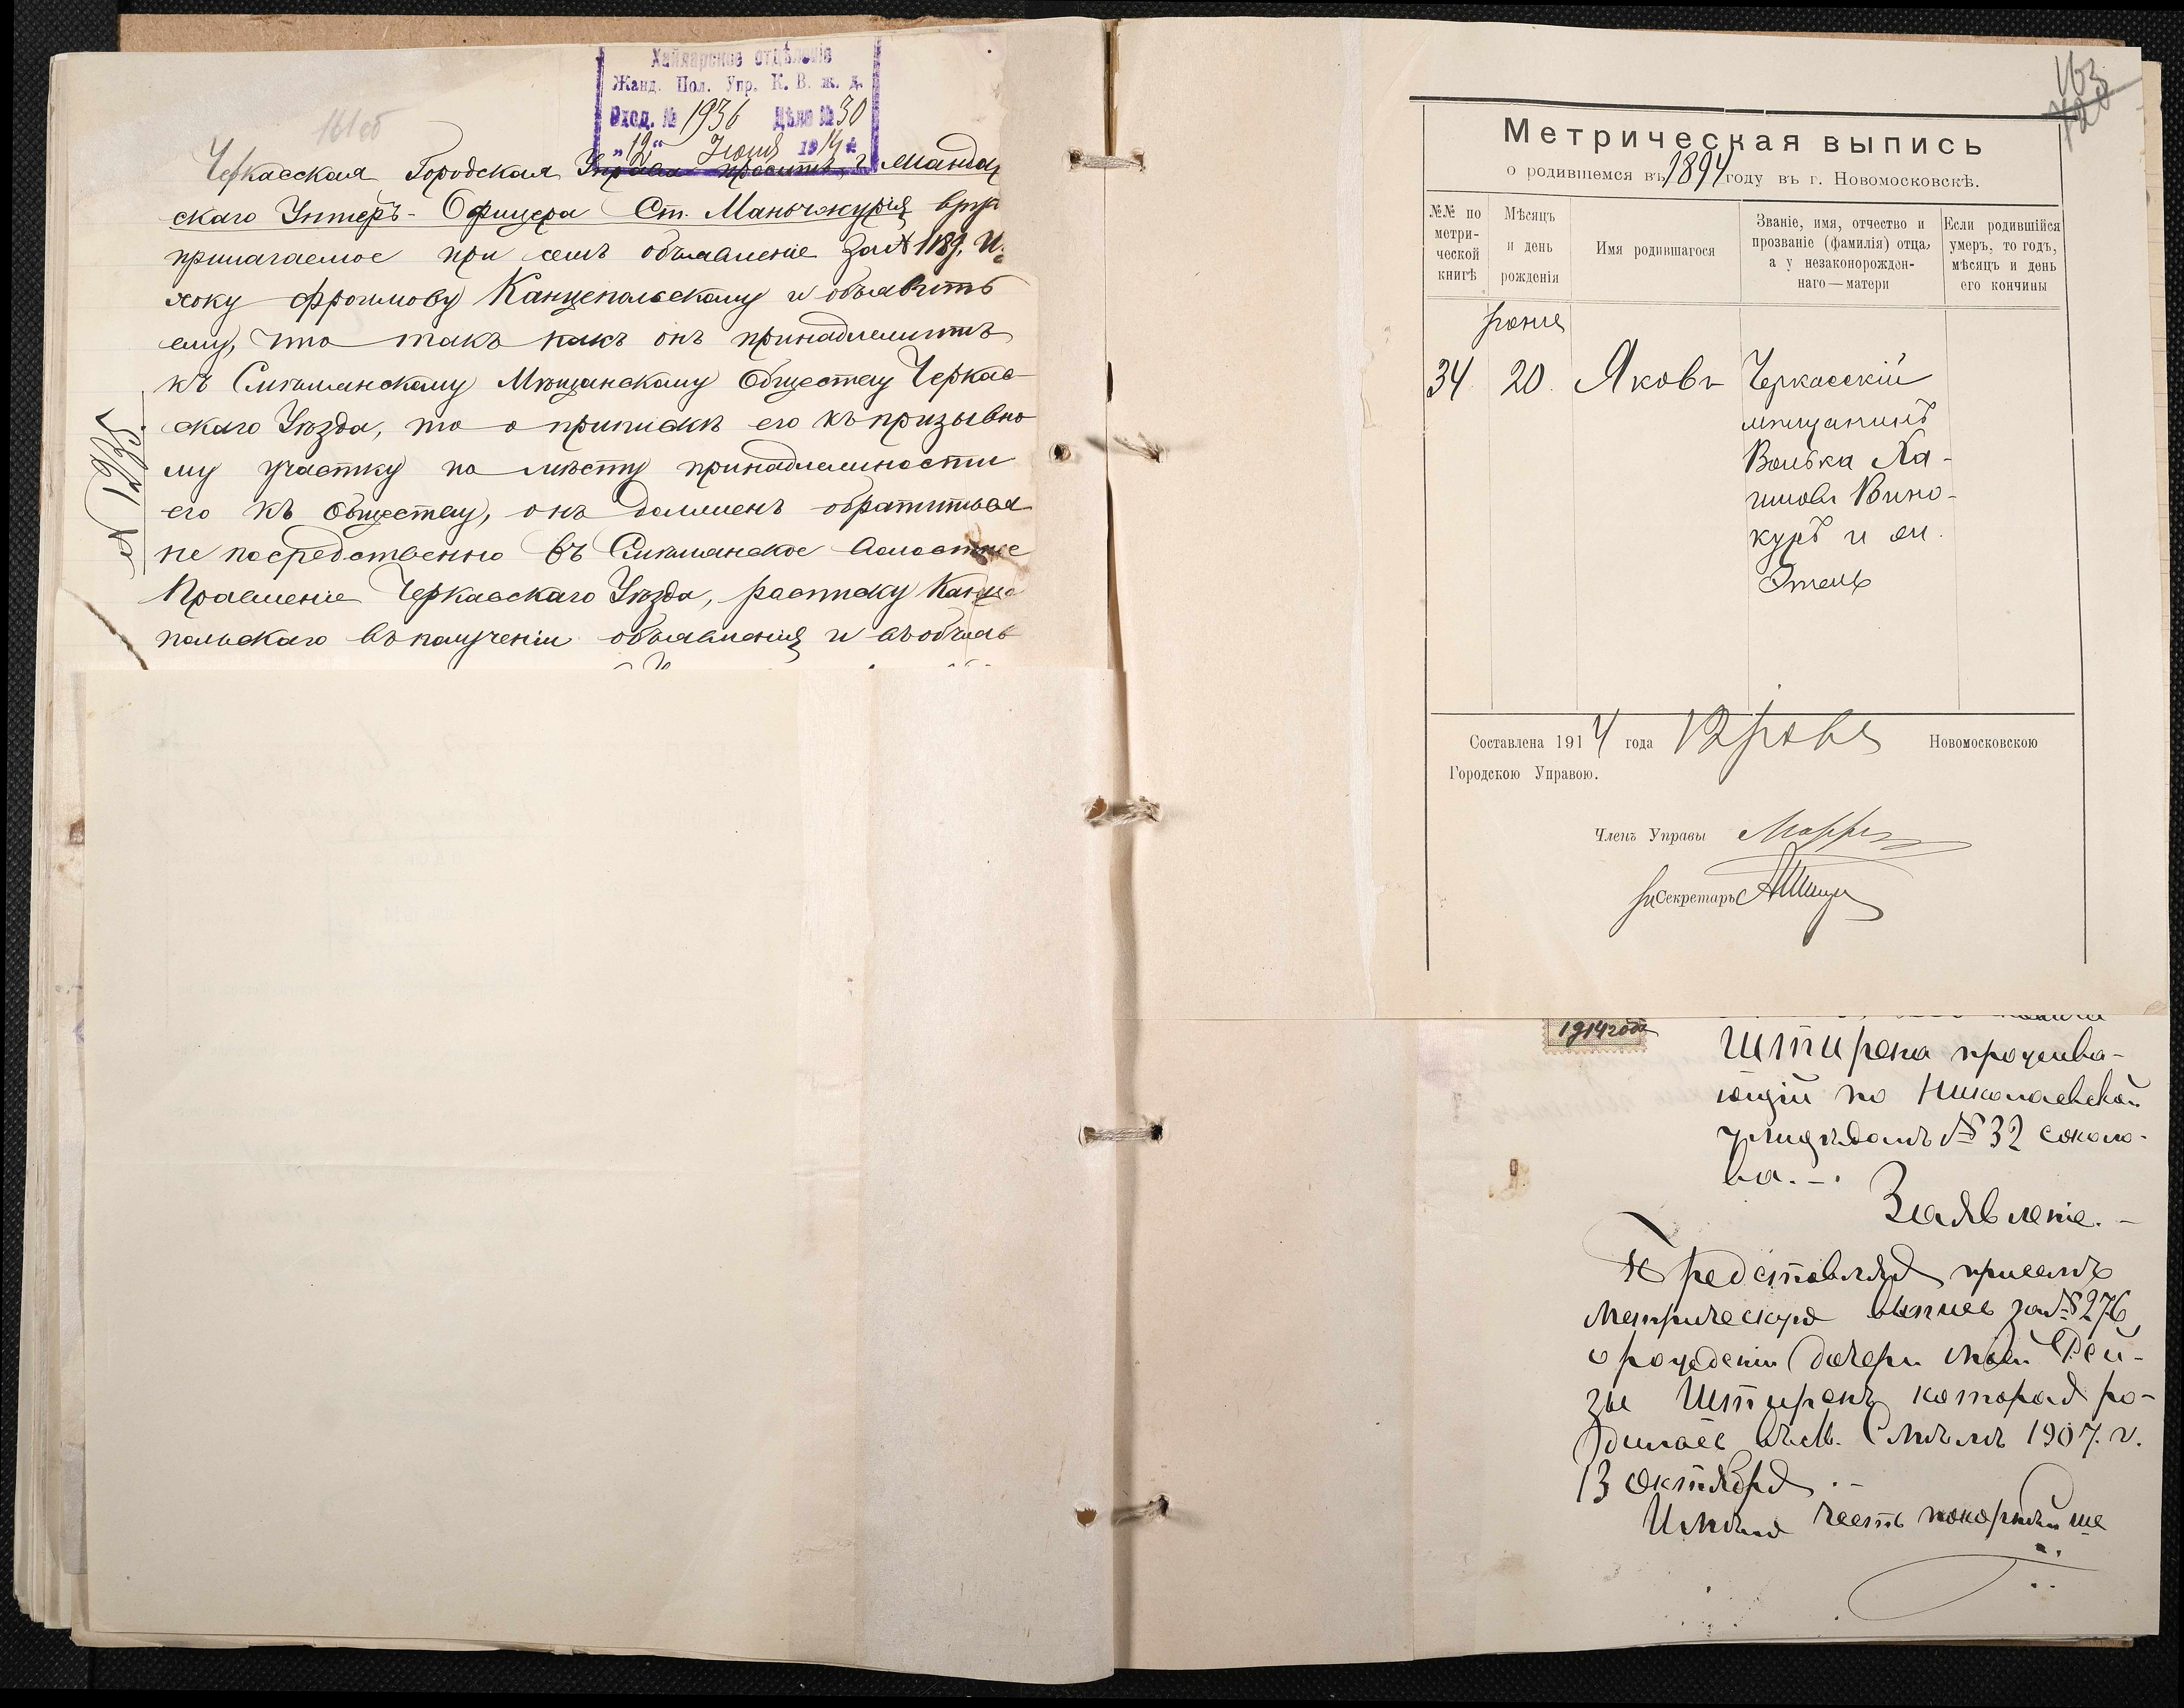 161об
Хайларское отдѣленіе
Жанд. Пол. Упр. К. В. ж. д.
Вход. № 1936 Дѣло № 30
"12" Іюня 1914 г.
Черкасская Городская Управа проситъ г. Жандар
скаго Унтеръ-Офицера Ст. Маньчжурія вру
прилагаемое при семъ объявленіе за № 1189, И
хоку Фроимову Канцепольскому и объявить
ему, что такъ какъ онъ принадлежитъ
къ Смѣлянскому Мѣщанскому Обществу Черкас-
скаго Уѣзда, то о припискѣ его къ призывно
му участку по мѣсту принадлежности
его къ Обществу, онъ долженъ обратиться
не посредственно въ Смѣлянское Волостное
Правленіе Черкасскаго Уѣзда, расписку Канце
польскаго въ полученіи объявленія и въ объяв
163
Метрическая выпись
о родившемся въ 1894 году въ г. Новомосковскѣ.
№№ по метри-ческой книгѣ
Мѣсяцъ и день рожденія
Имя родившагося
Званіе, имя, отчество и прозваніе (фамилія) отца, а у незаконорожден-наго — матери
Если родившійся умеръ, то годъ, мѣсяцъ и день его кончины
34
20
Яковъ
Черкасскій
мѣщанинъ
Волька Ха-
имовъ Вино-
куръ и
Составлена 1914 года Новомосковскою
Городскою Управою.
Членъ Управы
Секретарь
1914 года
Штирена прожива-
ющій по Николаевской
улицѣ домъ № 32 Соколо-
ва. -.
Заявленіе. -
Представляя присемъ
метрическую выпись за № 276
о рожденіи дочери моей Рей-
зы Штиренъ которая ро-
дилась въ м. Смѣлѣ 1907. г.
13 октября . -
Имѣю честь покорнѣйше